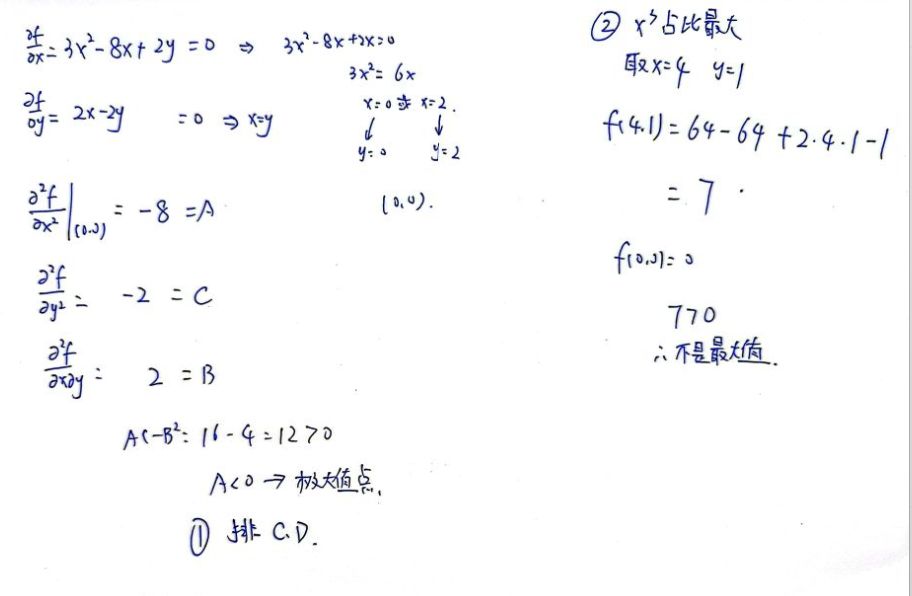 ∂f/∂x = 3x²-8x+2y = 0 ⇒ 3x²-8x+2x=0
3x² = 6x
∂f/∂y = 2x-2y = 0 ⇒ x=y
x=0 或 x=2.
↓ ↓
y=0 y=2
∂²f/∂x² |(0.0) = -8 = A
(0,0).
∂²f/∂y² = -2 = C
∂²f/∂x∂y = 2 = B
AC-B² = 16-4=12>0
A<0 → 极大值点.
① 排 C.D.
② x³占比最大
取x=4 y=1
f(4.1) = 64-64+2·4·1-1
= 7.
f(0,0)= 0
7>0
∴ 不是最大值.